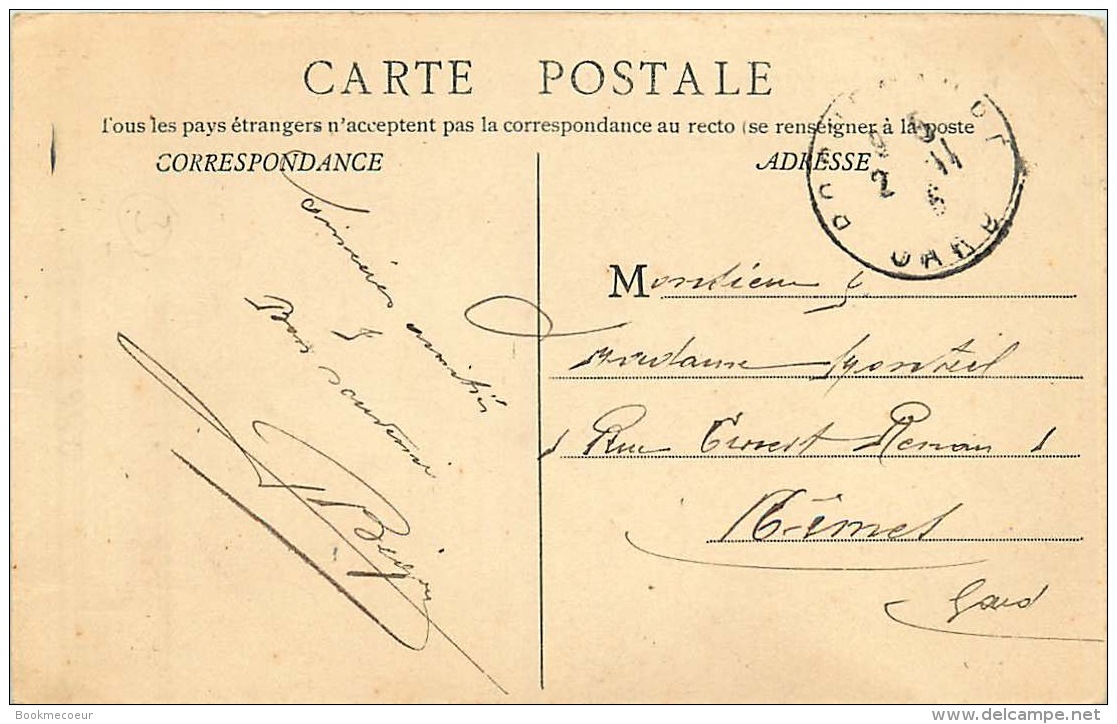 CARTE POSTALE
Tous les pays étrangers n'acceptent pas la correspondance au recto (se renseigner à la poste
CORRESPONDANCE
ADRESSE
Sincères amitiés
&
Bon souvenir
Monsieur &
Madame Monteil
Rue Ernest Renan
Nîmes
Gard
GARD
Bookmecoeur
www.delcampe.net